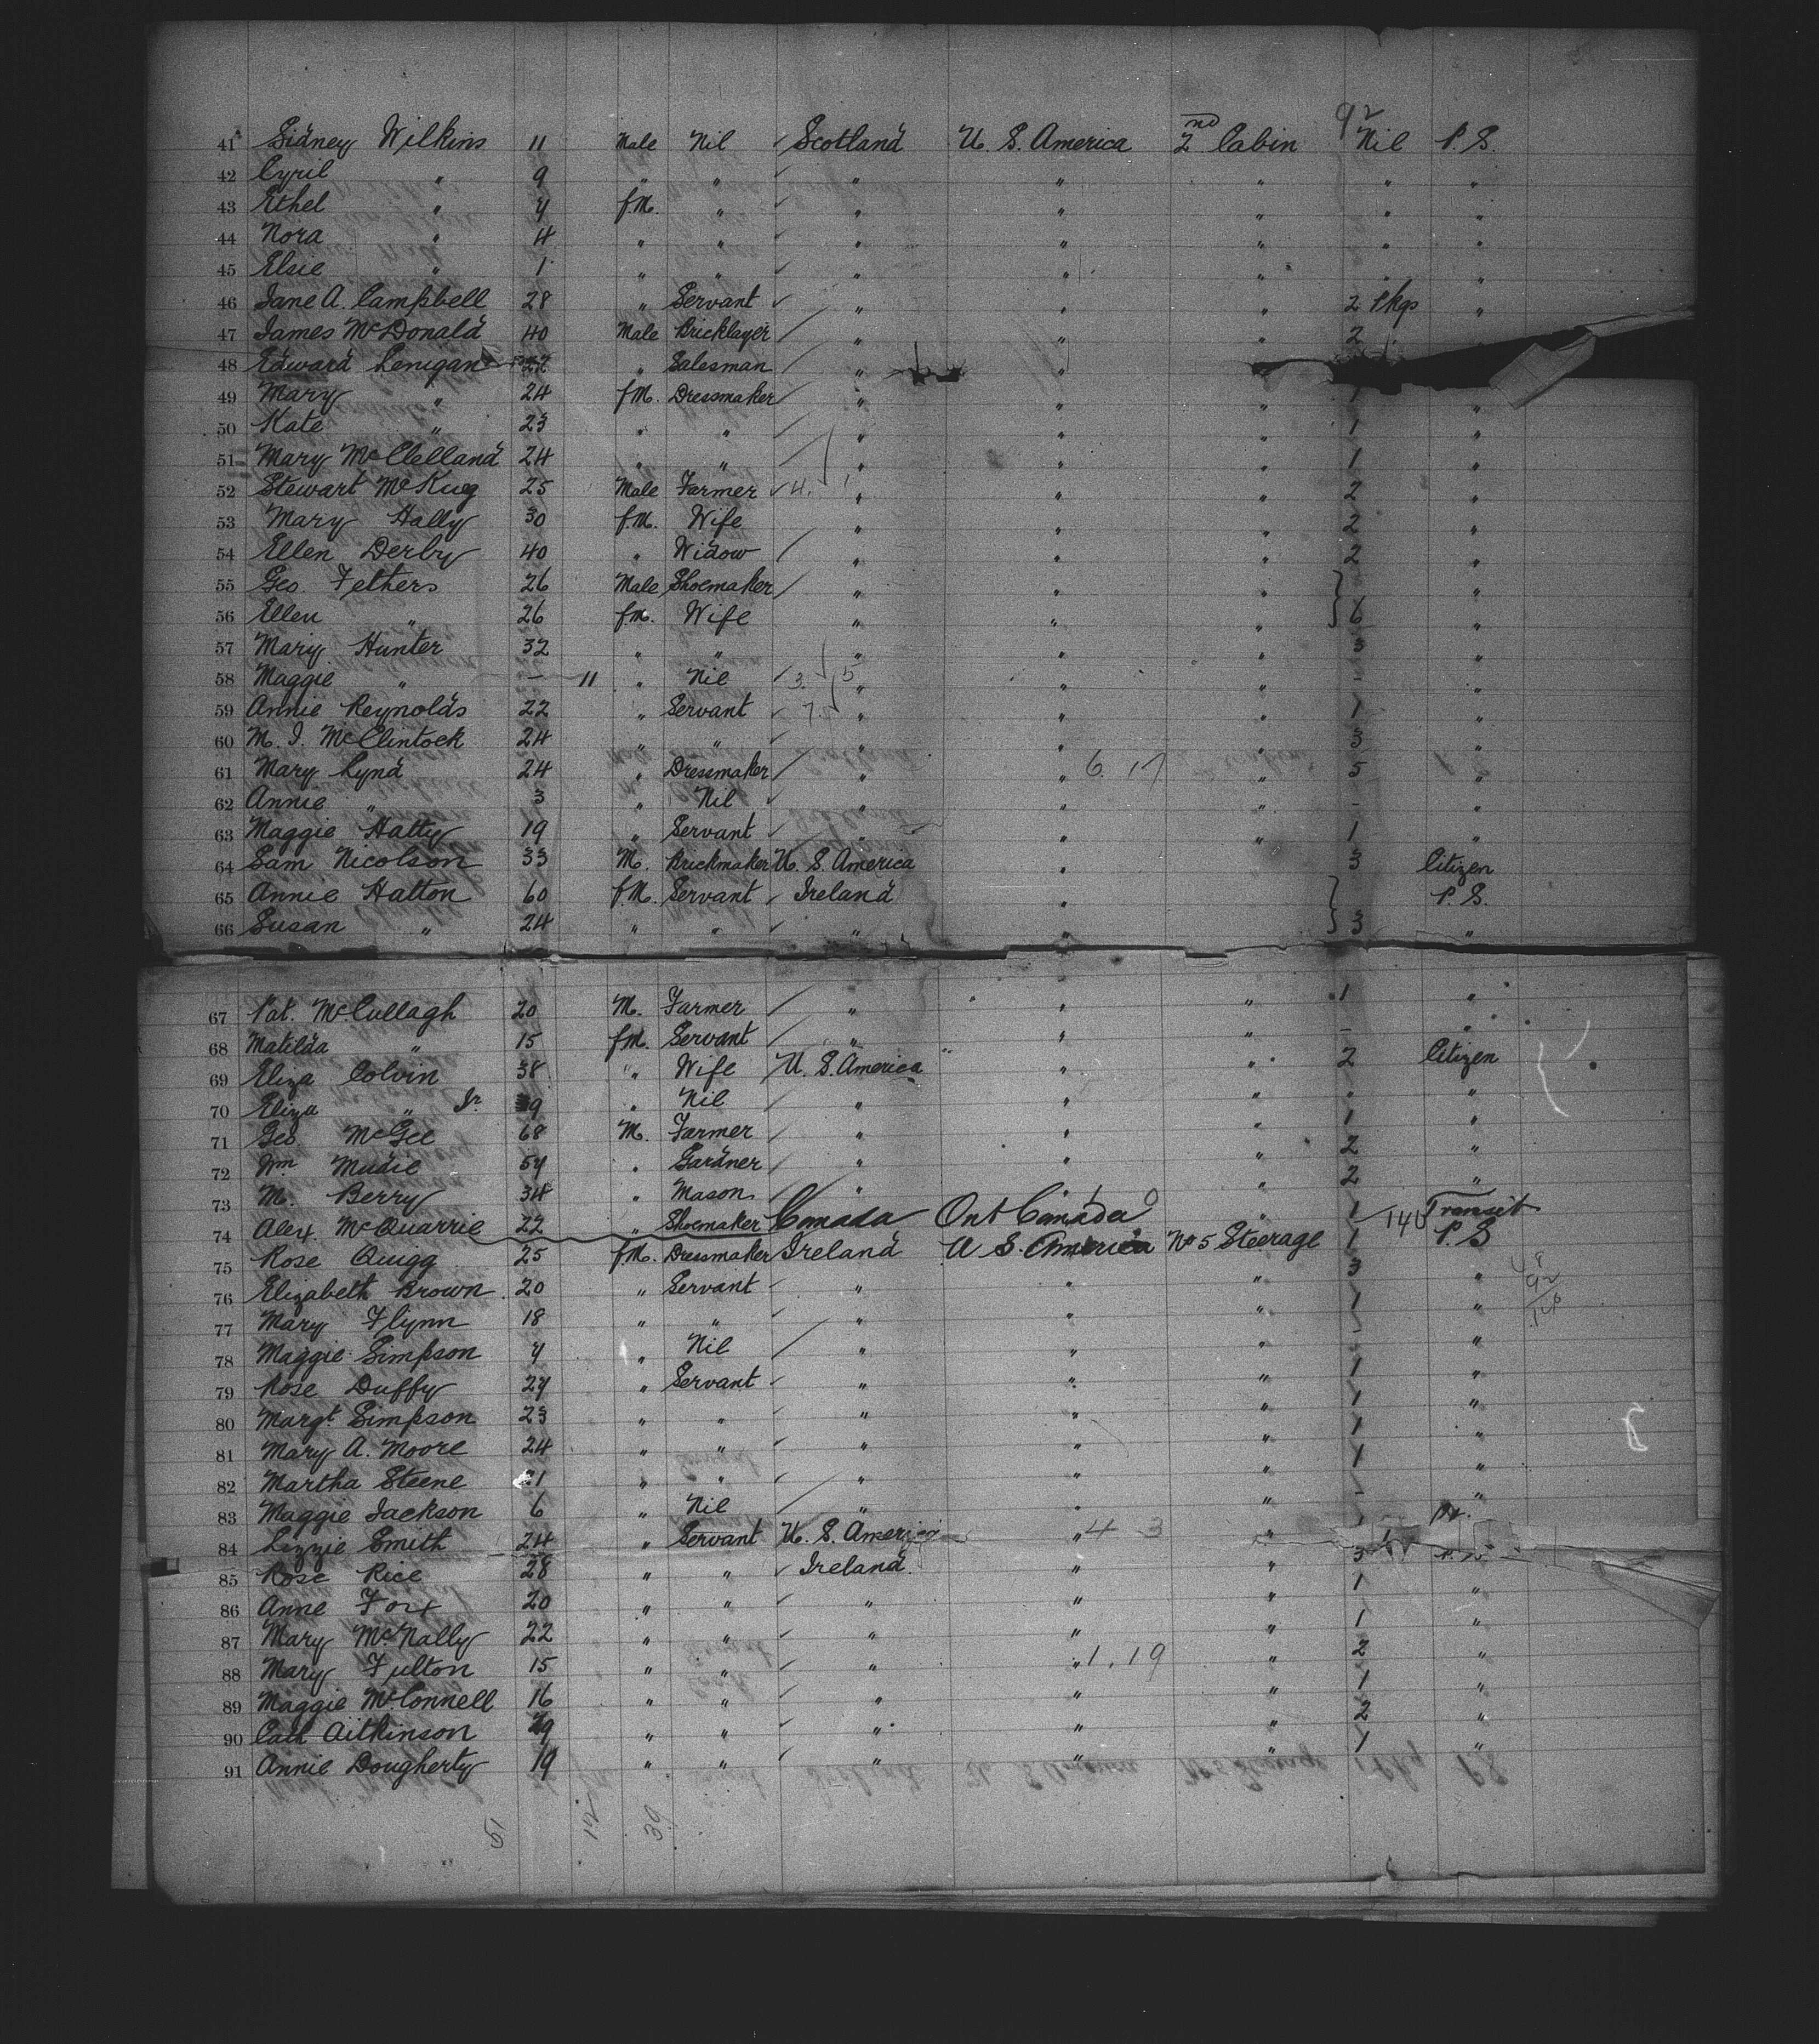 92
41 Sidney Wilkins 11 Male Nil ✓ Scotland U. S. America 2nd Cabin Nil P. S.
42 Cyril " 9 " " ✓ " " " " "
43 Ethel " 7 f.M. " ✓ " " " " "
44 Nora " 4 " " ✓ " " " " "
45 Elsie " 1 " " ✓ " " " " "
46 Jane A. Campbell 28 " Servant ✓ " " " 2 Pkgs "
47 James McDonald 40 Male Bricklayer / " " " 2 "
48 Edward Lenigan 22 " Salesman / " "
49 Mary " 24 f.M. Dressmaker / " " " 1 "
50 Kate " 23 " " / " " " 1 "
51 Mary McClelland 24 " " / " " " 1 "
52 Stewart 25 Male Farmer ✓ 4. " " " 2 "
53 Mary Hally 30 f.M. Wife " " " 2 "
54 Ellen Derby 40 " Widow / " " " 2 "
55 Geo Fethers 26 Male Shoemaker / " " " "
56 Ellen " 26 f.M. Wife " " " 6 "
57 Mary Hunter 32 " " " " " 3 "
58 Maggie " — 11 " Nil ✓ 3. 5 " " " - "
59 Annie Reynolds 22 " Servant ✓ 7. " " " 1 "
60 M. J. McClintock 24 " " ✓ " " " 3 "
61 Mary Lynd 24 " Dressmaker / " " 6. 17 " 5 "
62 Annie " 3 " Nil ✓ " " " - "
63 Maggie Hatty 19 " Servant ✓ " " " 1 "
64 Sam Nicolson 33 M. Brickmaker U. S. America " 3 Citizen
65 Annie Hatton 60 f.M. Servant ✓ Ireland " P. S.
66 Susan " 24 " " ✓ " " 3 "
67 Pat. McCullagh 20 M. Farmer / " " " 1 "
68 Matilda " 15 f.M. Servant / " " " - "
69 Eliza Colvin 38 " Wife / U. S. America " " 2 Citizen
70 Eliza " Jr 9 " Nil / " " " " "
71 Geo McGee 68 M. Farmer / " " " 1 "
72 Wm Mudie 54 " Gardner / " " " 2 "
73 M. Berry 34 " Mason / " " 2 "
74 Alex. McQuarrie 22 " Shoemaker Canada Ont Canada " 1 140 Transit
75 Rose Quigg 25 f.M. Dressmaker Ireland U S. America No 5 Steerage 1 P. S
76 Elizabeth Brown 20 " Servant ✓ " " " 3 "
77 Mary Flynn 18 " " ✓ " " " 1 "
78 Maggie Simpson 7 " Nil / " " " - "
79 Rose Duffy 27 " Servant ✓ " " " 1 "
80 Margt Simpson 23 " " ✓ " " " 1 "
81 Mary A. Moore 24 " " ✓ " " " 1 "
82 Martha Steene 21 " " ✓ " " " 1 "
83 Maggie Jackson 6 " Nil / " " " - "
84 Lizzie Smith 24 " Servant U. S. America " 4 3 " 1
85 Rose Rice 28 " " ✓ Ireland " " 3 P. S
86 Anne Fox 20 " " ✓ " " " 1 "
87 Mary McNally 22 " " ✓ " " " 1 "
88 Mary Fulton 15 " " ✓ " " 1. 19 " 2 "
89 Maggie McConnell 16 " " ✓ " " " 1 "
90 Cath Aitkinson 19 " " ✓ " " " 2 "
91 Annie Dougherty 19 " " ✓ " " " 1 "
51 12 39